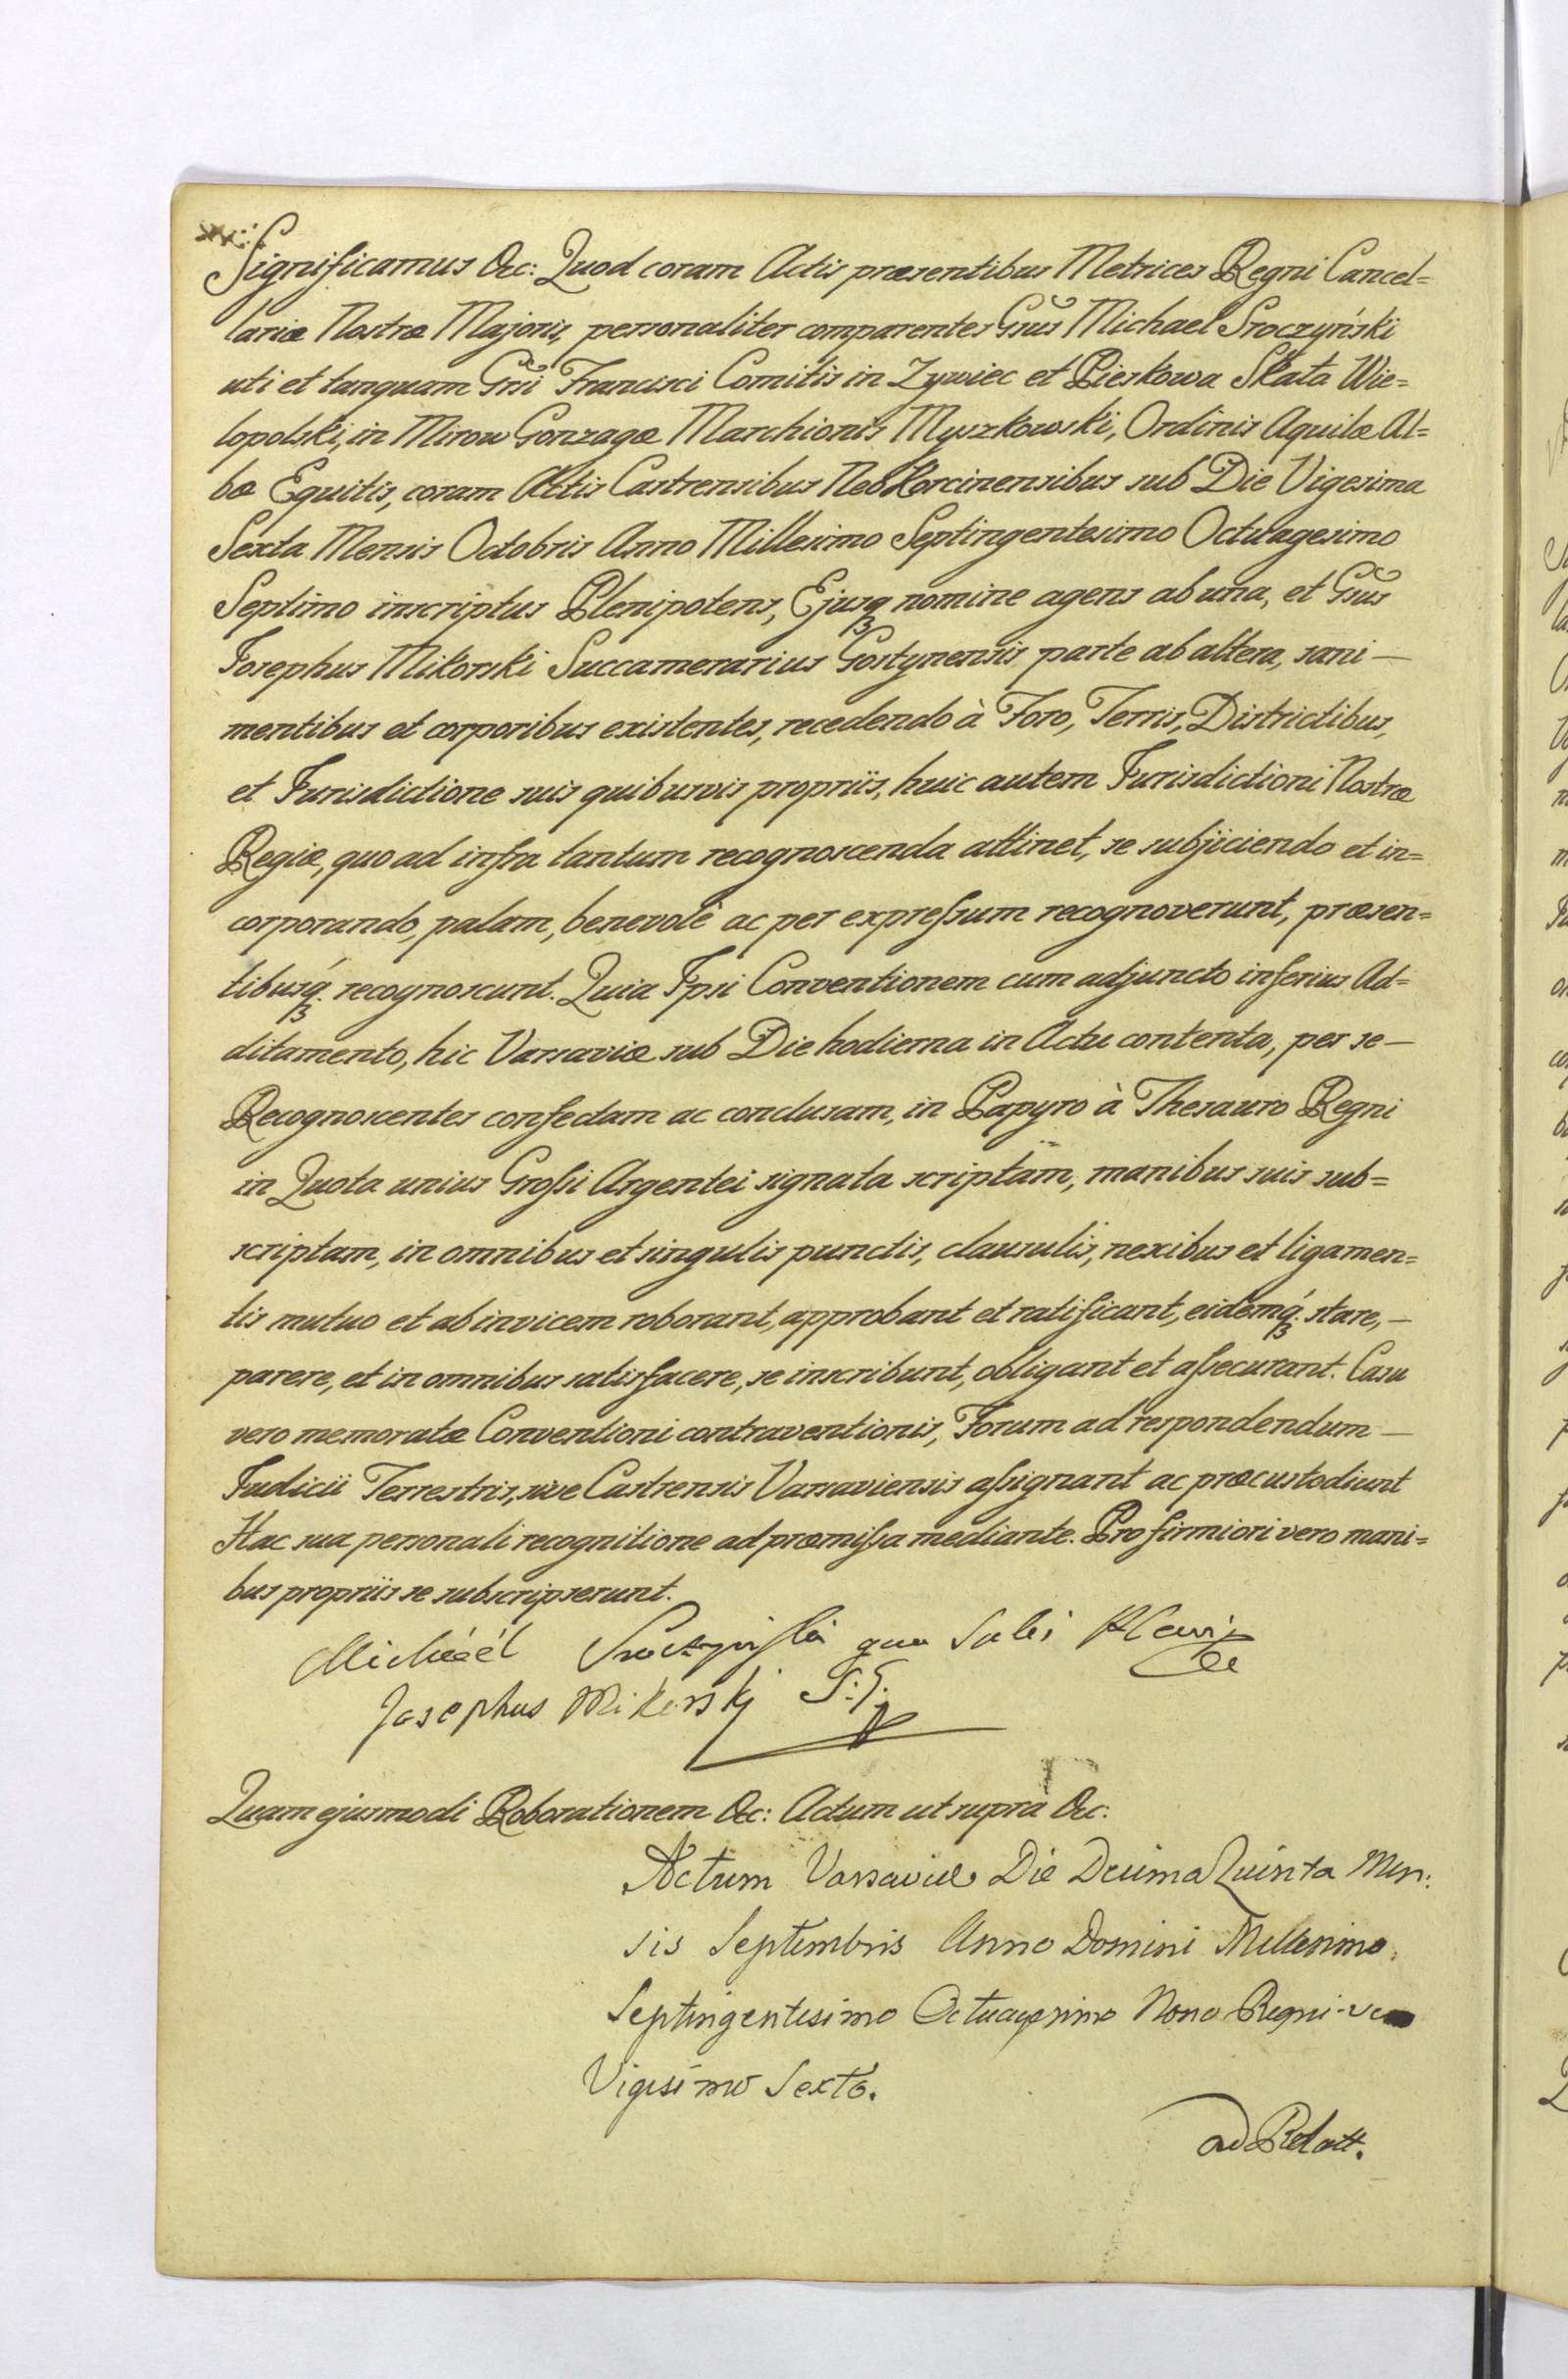 Significamus &c: Quod coram Actis præsentibus Metrices Regni Cancel=
lariæ Nostræ Majoris, personaliter comparentes Gñus Michael Sroczyński
uti et tanquam Gñi Francisci Comitis in Zywiec et Pieskowa Skała Wie=
lopolski, in Mirow Gonzagæ Marchionis Myszkowski, Ordinis Aquilæ Al=
bæ Equitis, coram Actis Castrensibus NeoKorcinensibus sub Die Vigesima
Sexta Mensis Octobris Anno Millesimo Septingentesimo Octuagesimo
Septimo inscriptus Plenipotens, Ejusq3 nomine agens ab una, et Gñus
Josephus Mikorski Succamerarius Gostynensis parte ab altera, sani —
mentibus et corporibus existentes, recedendo à Foro, Terris, Districtibus,
et Jurisdictione suis quibusvis propriis, huic autem Jurisdictioni Nostræ
Regiæ, quo ad infra tantum recognoscenda attinet, se subjiciendo et in=
corporando, palam, benevolè ac per expressum recognoverunt, præsen=
tibusq́3 recognoscunt. Quia Ipsi Conventionem cum adjuncto inferius Ad=
ditamento, hic Varsaviæ sub Die hodierna in Actu contenta, per se —
Recognoscentes confectam ac conclusam, in Papyro à Thesauro Regni
in Quota unius Grossi Argentei signata scriptam, manibus suis sub=
scriptam, in omnibus et singulis punctis, clausulis, nexibus et ligamen=
tis mutuo et abinvicem roborant, approbant et ratificant, eidemq́3 stare, —
parere, et in omnibus satisfacere, se inscribunt, obligant et assecurant. Casu
vero memoratæ Conventioni contraventionis, Forum ad respondendum —
Judicii Terrestris, sive Castrensis Varsaviensis assignant ac præcustodiunt
Hac sua personali recognitione ad præmissa mediante. Pro firmiori vero mani=
bus propriis se subscripserunt.
Michaél Sroczyński qua
Josephus Mikorskj S: G.
Quam ejusmodi Roborationem &c: Actum ut suprà &c:
Actum Varsaviæ Die Decima Quinta Men:
sis Septembris Anno Domini Millesimo
Septingentesimo Octuagesimo Nono Regni
Vigesimo Sexto.
ad Relatt.